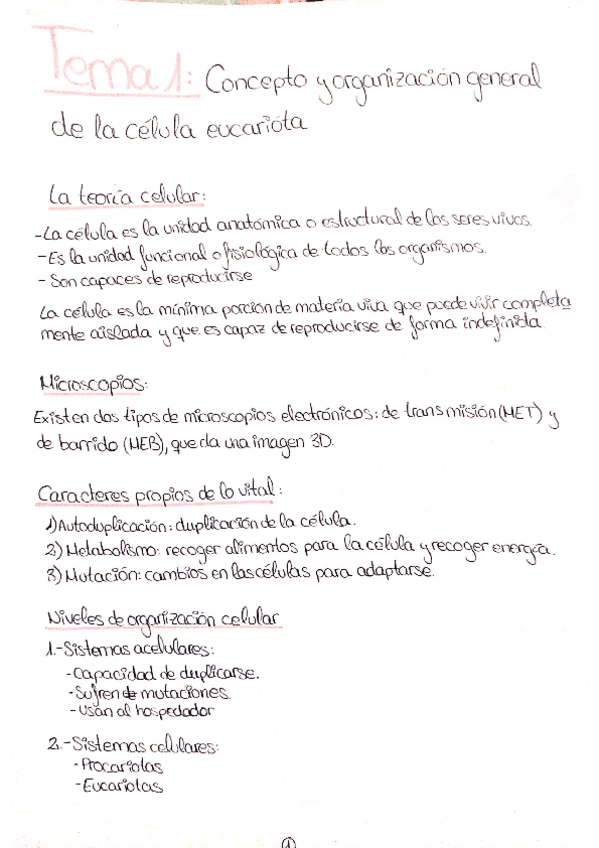 Tema 1: Concepto y organización general
de la célula eucariota
La teoría celular:
-La célula es la unidad anatómica o estructural de los seres vivos.
-Es la unidad funcional o fisiológica de todos los organismos.
- Son capaces de reproducirse
La célula es la mínima porción de materia viva que puede vivir completa
mente aislada y que es capaz de reproducirse de forma indefinida.
Microscopios:
Existen dos tipos de microscopios electrónicos: de transmisión (MET) y
de barrido (MEB), que da una imagen 3D.
Caracteres propios de lo vital:
1) Autoduplicación: duplicación de la célula.
2) Metabolismo: recoger alimentos para la célula y recoger energía.
3) Mutación: cambios en las células para adaptarse.
Niveles de organización celular
1.-Sistemas acelulares:
-Capacidad de duplicarse.
-Sufren de mutaciones.
-Usan al hospedador
2.-Sistemas celulares:
-Procariotas
-Eucariotas
1